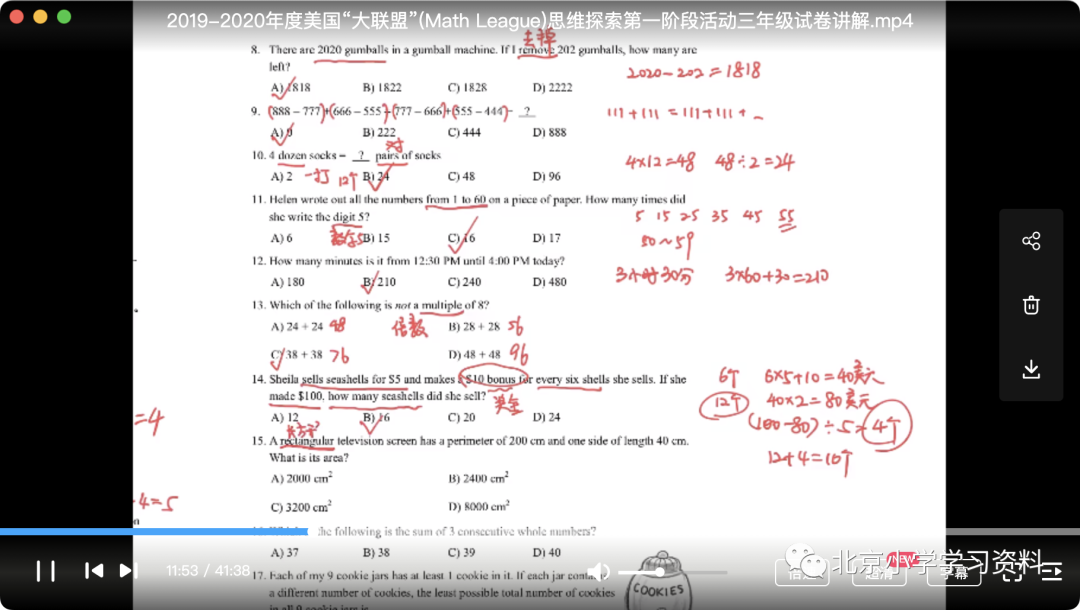 2019-2020年度美国“大联盟”(Math League)思维探索第一阶段活动三年级试卷讲解.mp4
去掉
8. There are 2020 gumballs in a gumball machine. If I remove 202 gumballs, how many are
left?
2020-202=1818
A) 1818 B) 1822 C) 1828 D) 2222
9. (888 – 777)+(666 – 555)–(777 – 666)+(555 – 444)= ?
111+111=111+111+
A) 0 B) 222 C) 444 D) 888
10. 4 dozen socks = ? pairs of socks
对
4×12=48 48÷2=24
A) 2 B) 24 C) 48 D) 96
一打 12个
11. Helen wrote out all the numbers from 1 to 60 on a piece of paper. How many times did
she write the digit 5?
5 15 25 35 45 55
A) 6 B) 15 C) 16 D) 17
数字5
50~59
12. How many minutes is it from 12:30 PM until 4:00 PM today?
A) 180 B) 210 C) 240 D) 480
3小时30分 3×60+30=210
13. Which of the following is not a multiple of 8?
倍数
A) 24 + 24 48 B) 28 + 28 56
C) 38 + 38 76 D) 48 + 48 96
14. Sheila sells seashells for $5 and makes a $10 bonus for every six shells she sells. If she
made $100, how many seashells did she sell?
奖金
6个 6×5+10=40美元
12个 40×2=80美元
(100-80)÷5=4个
12+4=16个
A) 12 B) 16 C) 20 D) 24
长方形
15. A rectangular television screen has a perimeter of 200 cm and one side of length 40 cm.
What is its area?
A) 2000 cm² B) 2400 cm²
C) 3200 cm² D) 8000 cm²
=4
4=5
the following is the sum of 3 consecutive whole numbers?
A) 37 B) 38 C) 39 D) 40
17. Each of my 9 cookie jars has at least 1 cookie in it. If each jar
a different number of cookies, the least possible total number of cookies
in all 9 cookie jars is
COOKIES
11:53 / 41:38
倍速 超清 NEW 字幕
北京小学学习资料